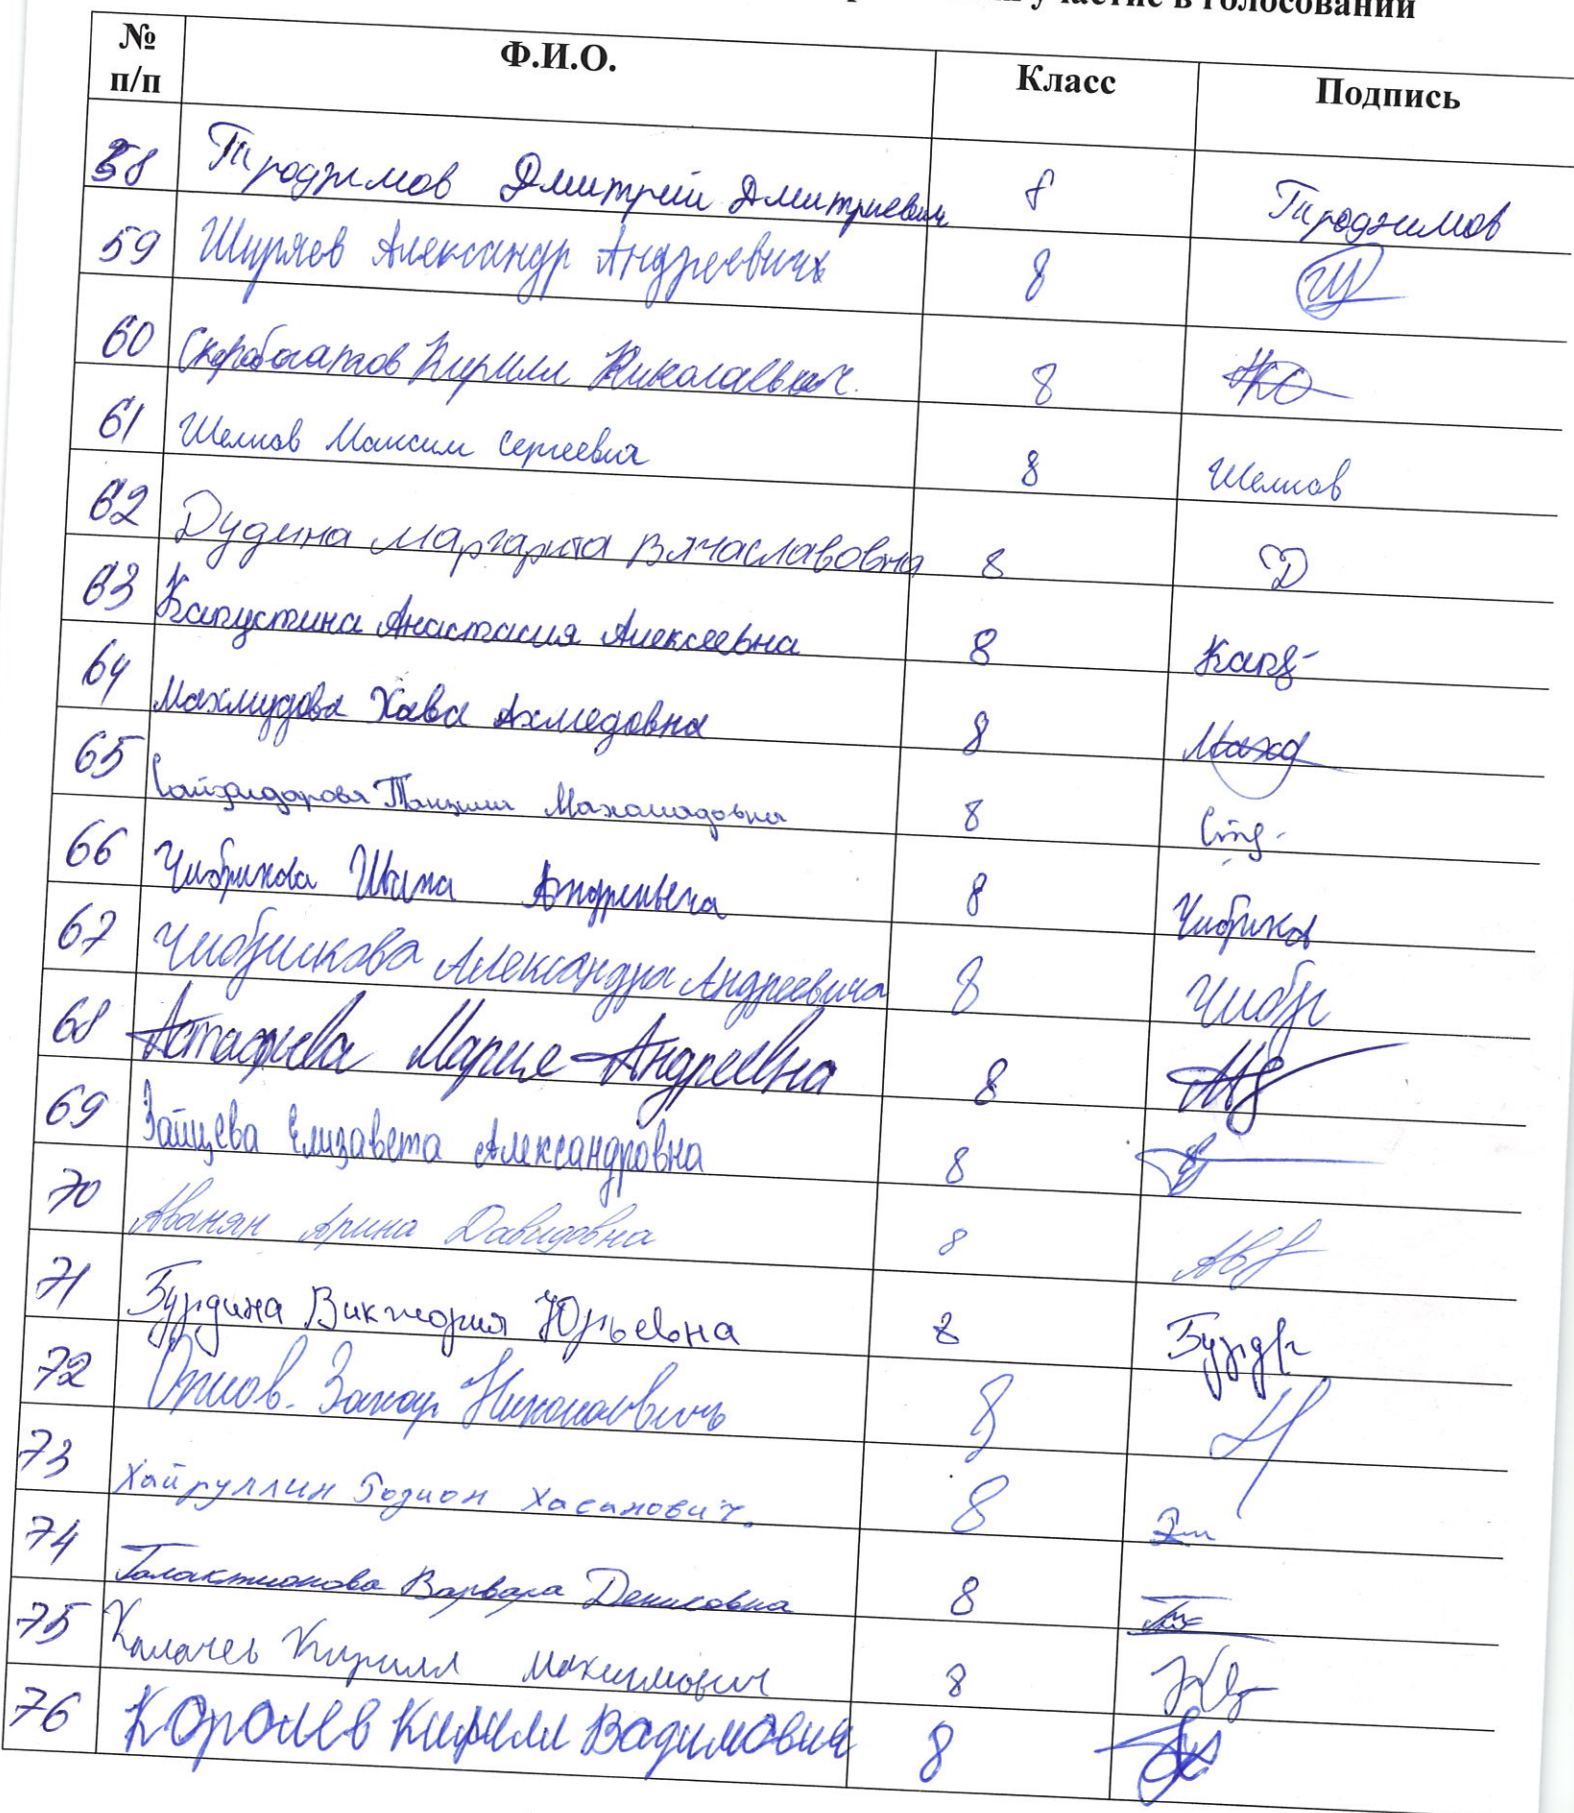 участие в голосовании
№ п/п Ф.И.О. Класс Подпись
58 Дмитрий Дмитриевич 8
59 Ширяев Александр Андреевич 8
60 Скоробогатов Кирилл Николаевич. 8
61 Шелков Максим Сергеевич 8 Шелков
62 Дудина Маргарита Вячаславовна 8 Д
63 Капустина Анастасия Алексеевна 8
64 Махмудова Хава Ахмедовна 8
65 Махамадовна 8
66 Чибрикова 8 Чибриков
67 Чибрикова Александра Андреевича 8 Чибр
68 Астафьева Мария Андреевна 8
69 Зайцева Елизавета Александровна 8
70 Аванян Арина Давидовна 8
71 Бурдина Виктория Юрьевна 8
72 Захар Николаевичь 8
73 Хайруллин Родион Хасанович. 8
74 Галактионова Варвара Денисовна 8
75 Калачев Кирилл Максимович 8
76 Королев Кирилл Вадимович 8